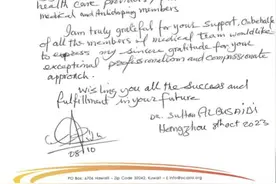 health care providers
medical and anti doping members
I am truly grateful for your support, on behalf
of all the members of medical team would like
to express my sincere gratitude for your
exceptional professionalism and compassionate
approach.
wishing you all the success and
fulfillment in your future
Dr. Sultan ALBUSAIDI
Hangzhou 8th oct 2023
08/10
PO Box: 6706 Hawalli - Zip Code 32042, Kuwait - E: info@ocasia.org